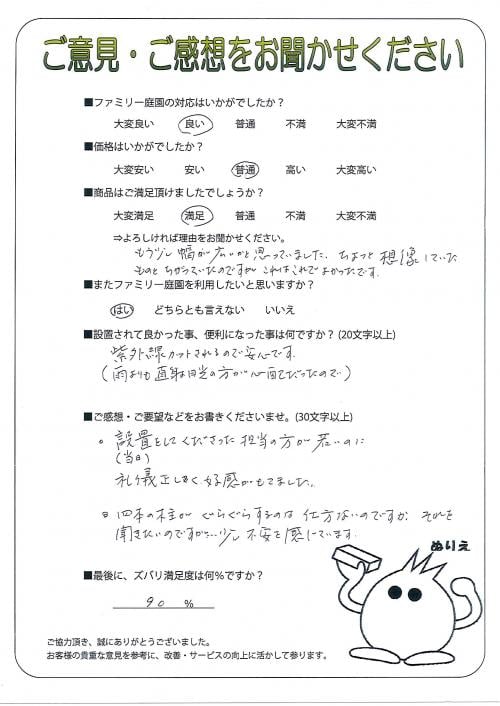 ご意見・ご感想をお聞かせください
■ファミリー庭園の対応はいかがでしたか？
大変良い 良い 普通 不満 大変不満
■価格はいかがでしたか？
大変安い 安い 普通 高い 大変高い
■商品はご満足頂けましたでしょうか？
大変満足 満足 普通 不満 大変不満
⇒よろしければ理由をお聞かせください。
もう少し幅が広いかと思っていました。ちょっと想像していた
ものとちがっていたのですがこれはこれでよかったです。
■またファミリー庭園を利用したいと思いますか？
はい どちらとも言えない いいえ
■設置されて良かった事、便利になった事は何ですか？(20文字以上)
紫外線カットされるので安心です。
(雨よりも直射日光の方が心配だったので)
■ご感想・ご要望などをお書きくださいませ。(30文字以上)
設置をしてくださった担当の方が若いのに
(当日)
礼儀正しく好感がもてました。
四本の柱がぐらぐらするのは仕方ないのですか それを
聞きたいのですが…少し不安を感じています。
ぬりえ
■最後に、ズバリ満足度は何％ですか？
90 %
ご協力頂き、誠にありがとうございました。
お客様の貴重な意見を参考に、改善・サービスの向上に活かして参ります。